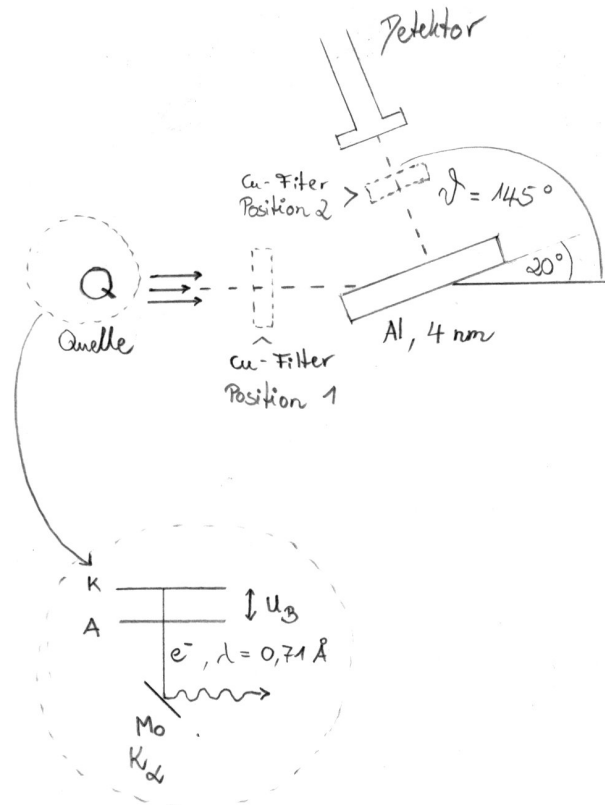 Detektor
Cu-Fiter
Position 2
ϑ = 145°
20°
Q
Quelle
Al, 4 nm
Cu-Filter
Position 1
K
A
U_B
e⁻, λ = 0,71 Å
Mo
K_α